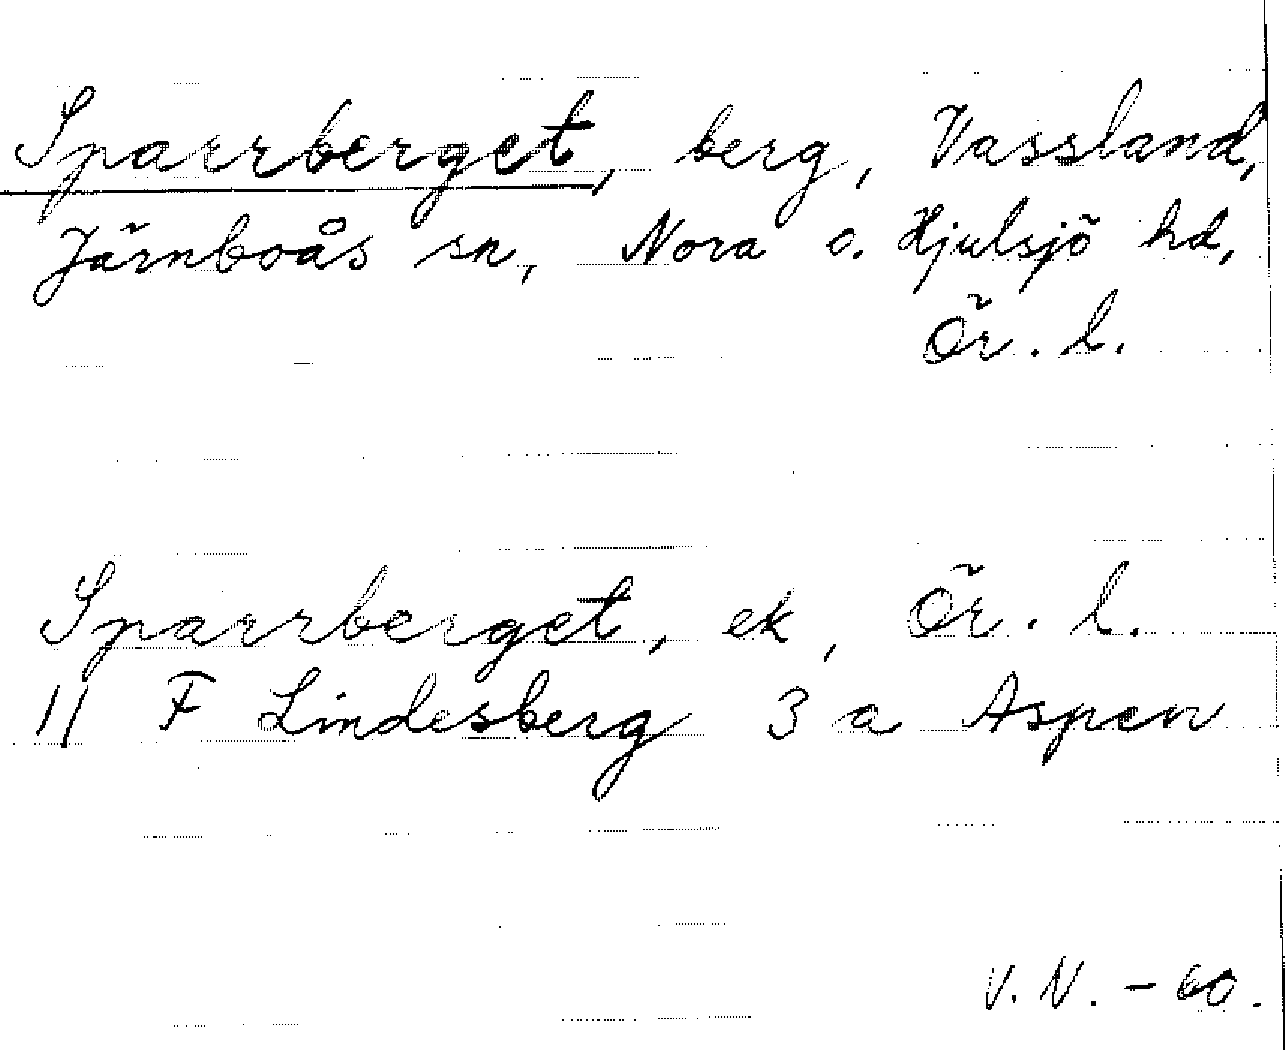 Sparrberget, berg, Vassland,
Järnboås sn, Nora o. Hjulsjö hd,
Ör. l.
Sparrberget, ek, Ör. l.
11 F Lindesberg 3 a Aspen
V. N. - 60.